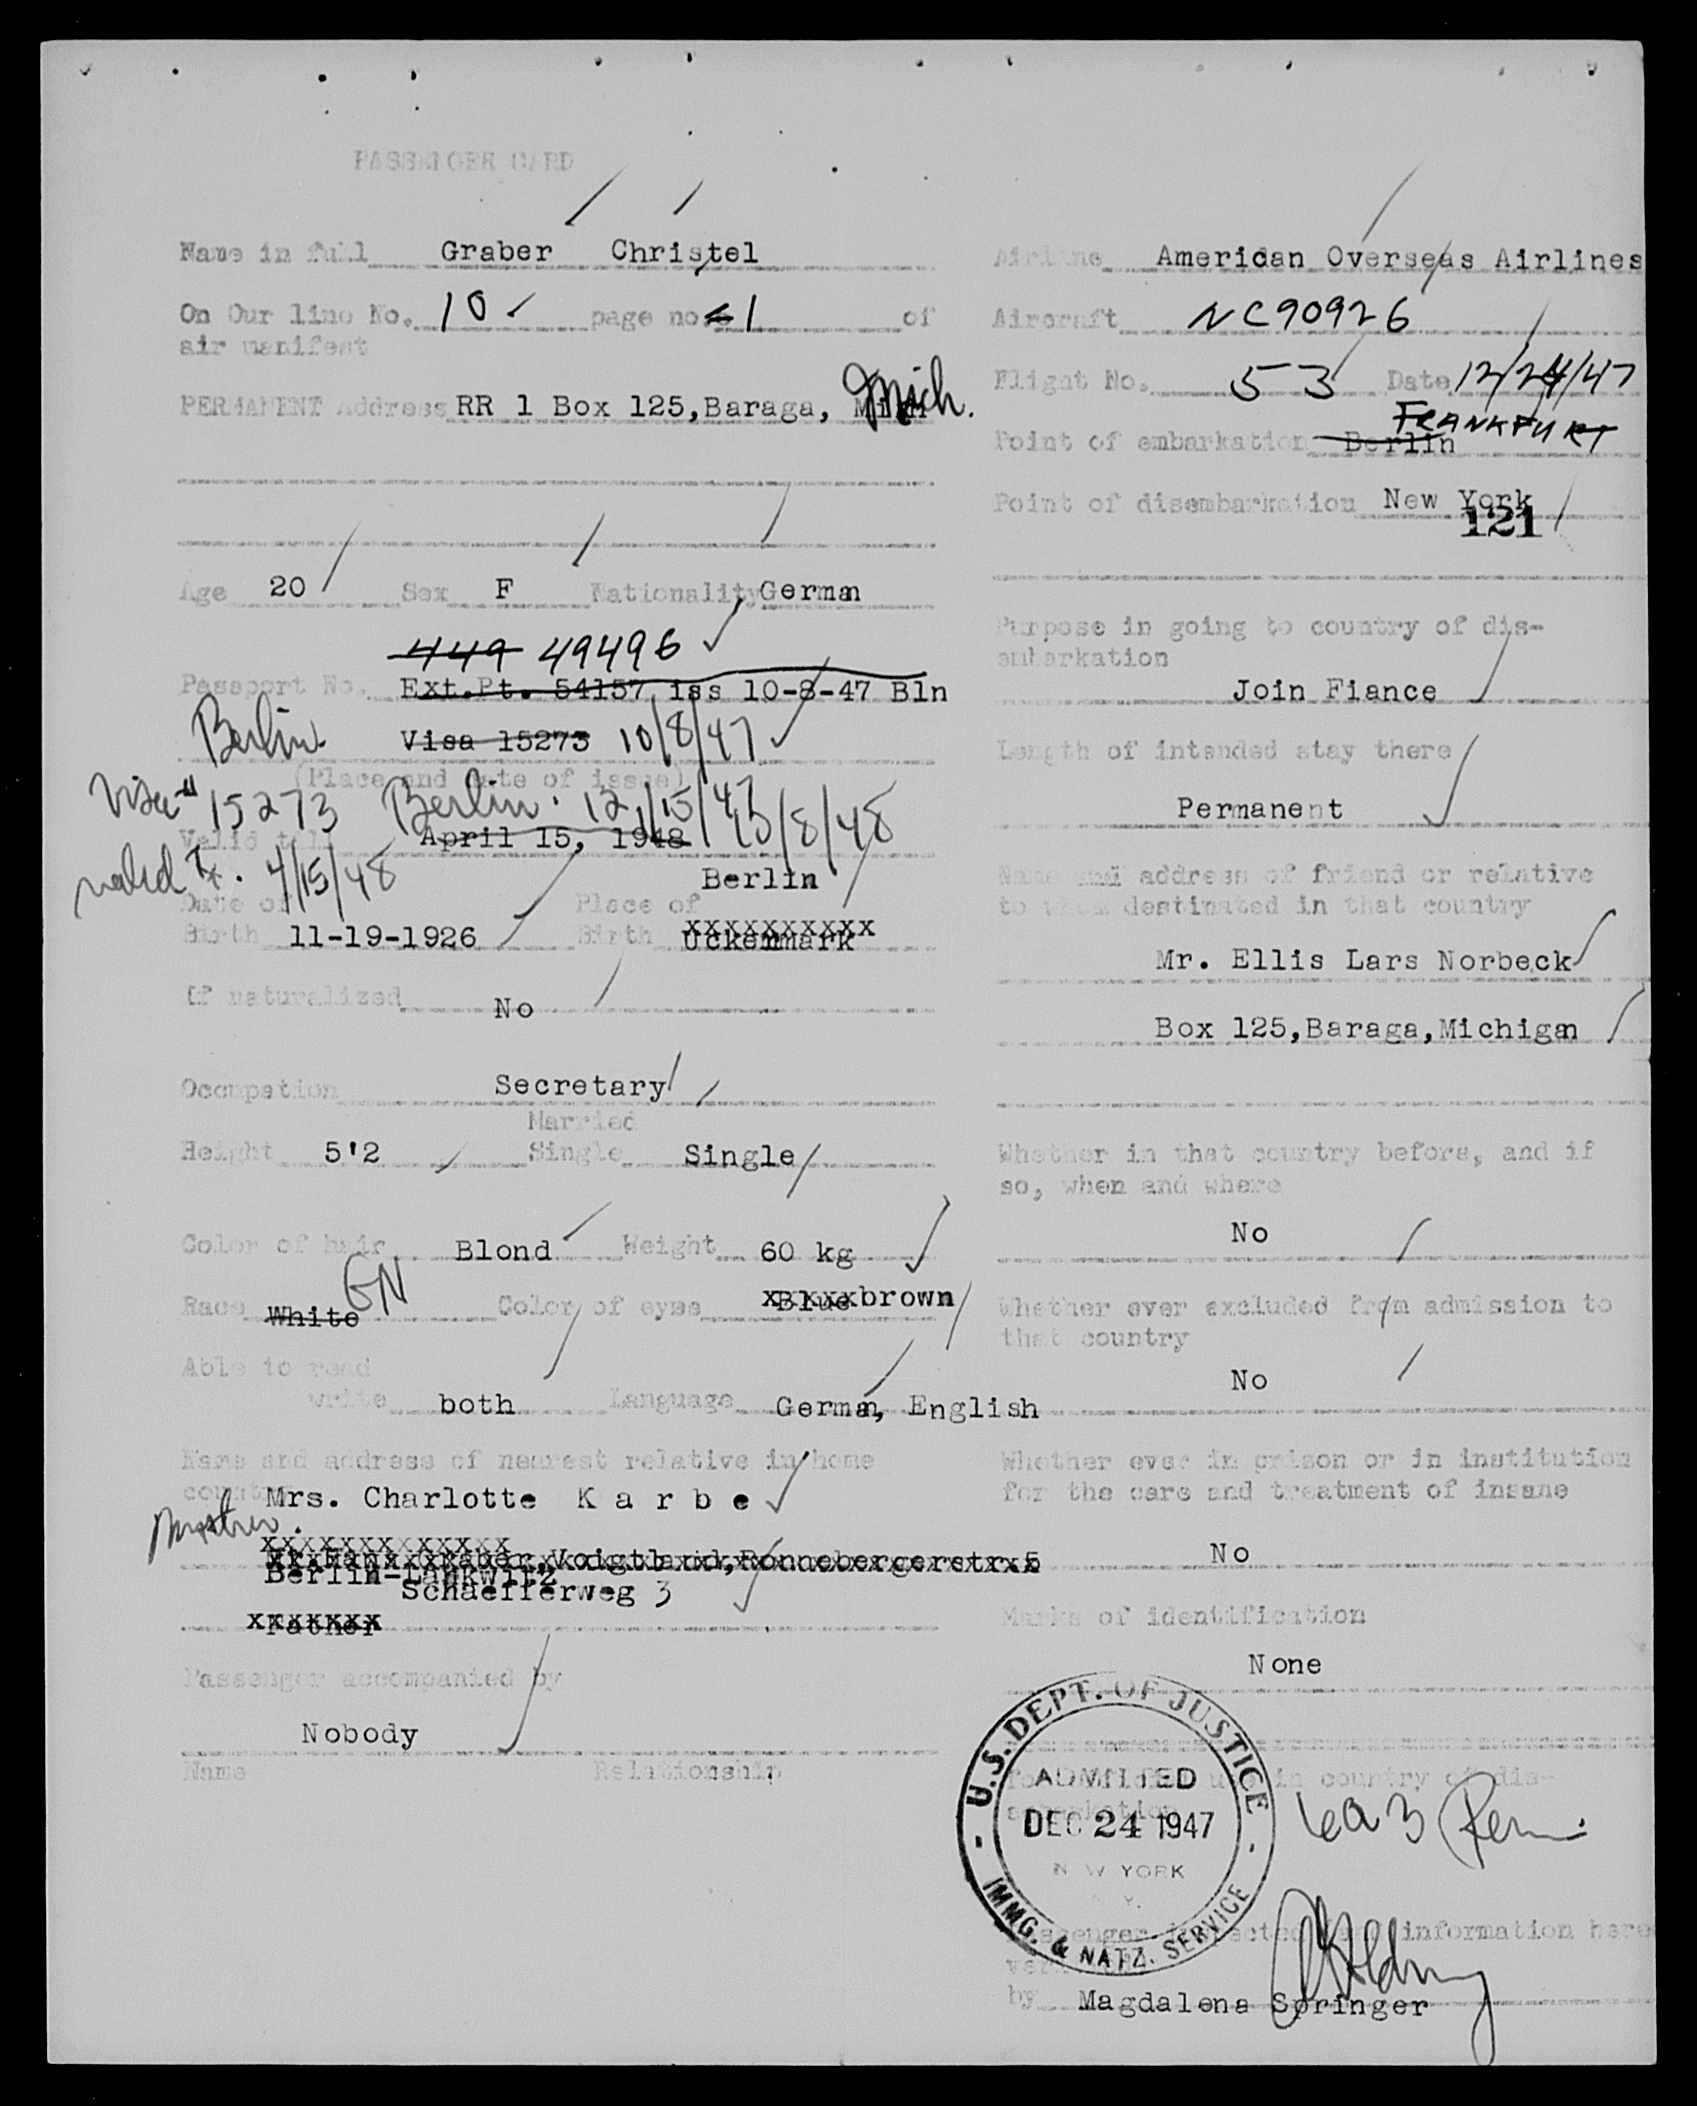 PASSENGER CARD
Name in full Graber Christel
On Our line No. 10 page no. 1 of
air manifest
PERMANENT Address RR 1 Box 125, Baraga, Mich.
Age 20 Sex F Nationality German
449 49496
Passport No. Ext.Pt. 54157, iss 10-8-47 Bln
Berlin Visa 15273 10/8/47
(Place and date of issue)
Visa 15273 Berlin. 12/15/47
Valid till April 15, 1948 10/8/48
valid to. 4/15/48
Berlin
Date of Place of
Birth 11-19-1926 Birth Uckenmark
If naturalized No
Occupation Secretary
Married
Height 5'2 Single Single
Color of hair Blond Weight 60 kg
Race White GN Color of eyes Blue brown
Able to read
write both Language German, English
Name and address of nearest relative in home
country Mrs. Charlotte K a r b e
Mother.
xxxxxxxxxxxxx
Graber, Voigtland, Ronnebergerstr. 5
Berlin-Lankwitz
Schaefferweg 3
Father
Passenger accompanied by
Nobody
Name Relationship
Airline Ameridan Overseas Airlines
Aircraft NC90926
Flight No. 53 Date 12/24/47
FRANKFURT
Point of embarkation Berlin
Point of disembarkation New York
121
Purpose in going to country of dis-
embarkation
Join Fiance
Length of intended stay there
Permanent
Name and address of friend or relative
to whom destinated in that country
Mr. Ellis Lars Norbeck
Box 125, Baraga, Michigan
Whether in that country before, and if
so, when and where
No
Whether ever excluded from admission to
that country
No
Whether ever in prison or in institution
for the care and treatment of insane
No
Marks of identification
None
For official use in country of dis-
embarkation
U.S. DEPT. OF JUSTICE
ADMITTED
DEC 24 1947
NEW YORK
N.Y.
IMMG. & NATZ. SERVICE
6a3 Perm.
Passenger inspected and information here
verified
by Magdalena Springer